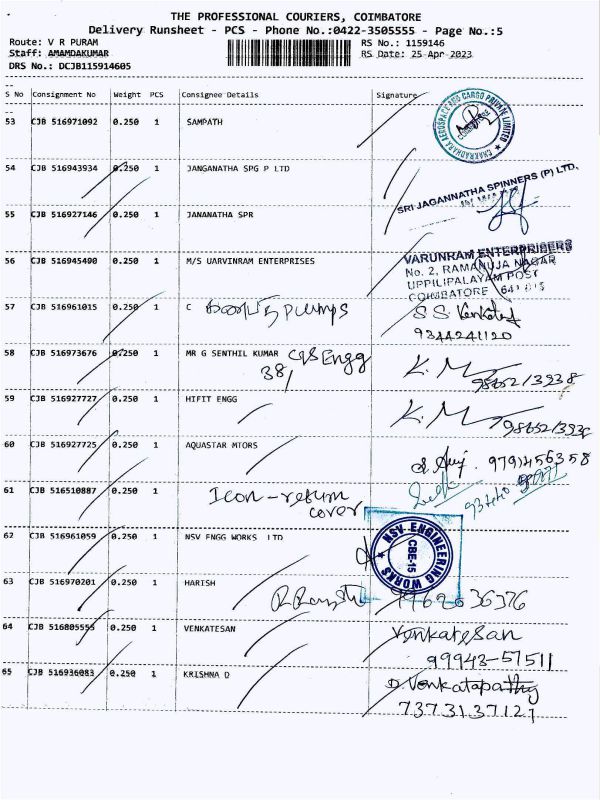 THE PROFESSIONAL COURIERS, COIMBATORE
Delivery Runsheet - PCS - Phone No.:0422-3505555 - Page No.:5
Route: V R PURAM RS No.: 1159146
Staff: AMAMDAKUMAR RS Date: 25 Apr-2023
DRS No.: DCJB115914605
S No Consignment No Weight PCS Consignee Details Signature
53 CJB 516971092 0.250 1 SAMPATH
CHAKRADHARA AEROSPACE AND CARGO PRIVATE LIMITED
COIMBATORE
54 CJB 516943934 0.250 1 JANGANATHA SPG P LTD
SRI JAGANNATHA SPINNERS (P) LTD.
55 CJB 516927146 0.250 1 JANANATHA SPR
56 CJB 516945400 0.250 1 M/S UARVINRAM ENTERPRISES
VARUNRAM ENTERPRISERS
No. 2, RAMANUJA NAGAR
UPPILIPALAYAM POST
COIMBATORE 641 015
57 CJB 516961015 0.250 1 C pumps S S Venkates
9344241120
58 CJB 516973676 0.250 1 MR G SENTHIL KUMAR Engg K. M
38/ 98652/3938
59 CJB 516927727 0.250 1 HIFIT ENGG K. M
98652/393
60 CJB 516927725 0.250 1 AQUASTAR MTORS 9791456358
61 CJB 516510887 0.250 1 Icon-return
cover 93440
62 CJB 516961059 0.250 1 NSV ENGG WORKS LTD
NSV ENGINEERING WORKS
CBE-15
63 CJB 516970201 0.250 1 HARISH 9762636376
64 CJB 516805555 0.250 1 VENKATESAN Venkatesan
99943-57511
65 CJB 516936083 0.250 1 KRISHNA D D. Venkatapathy
7373137127